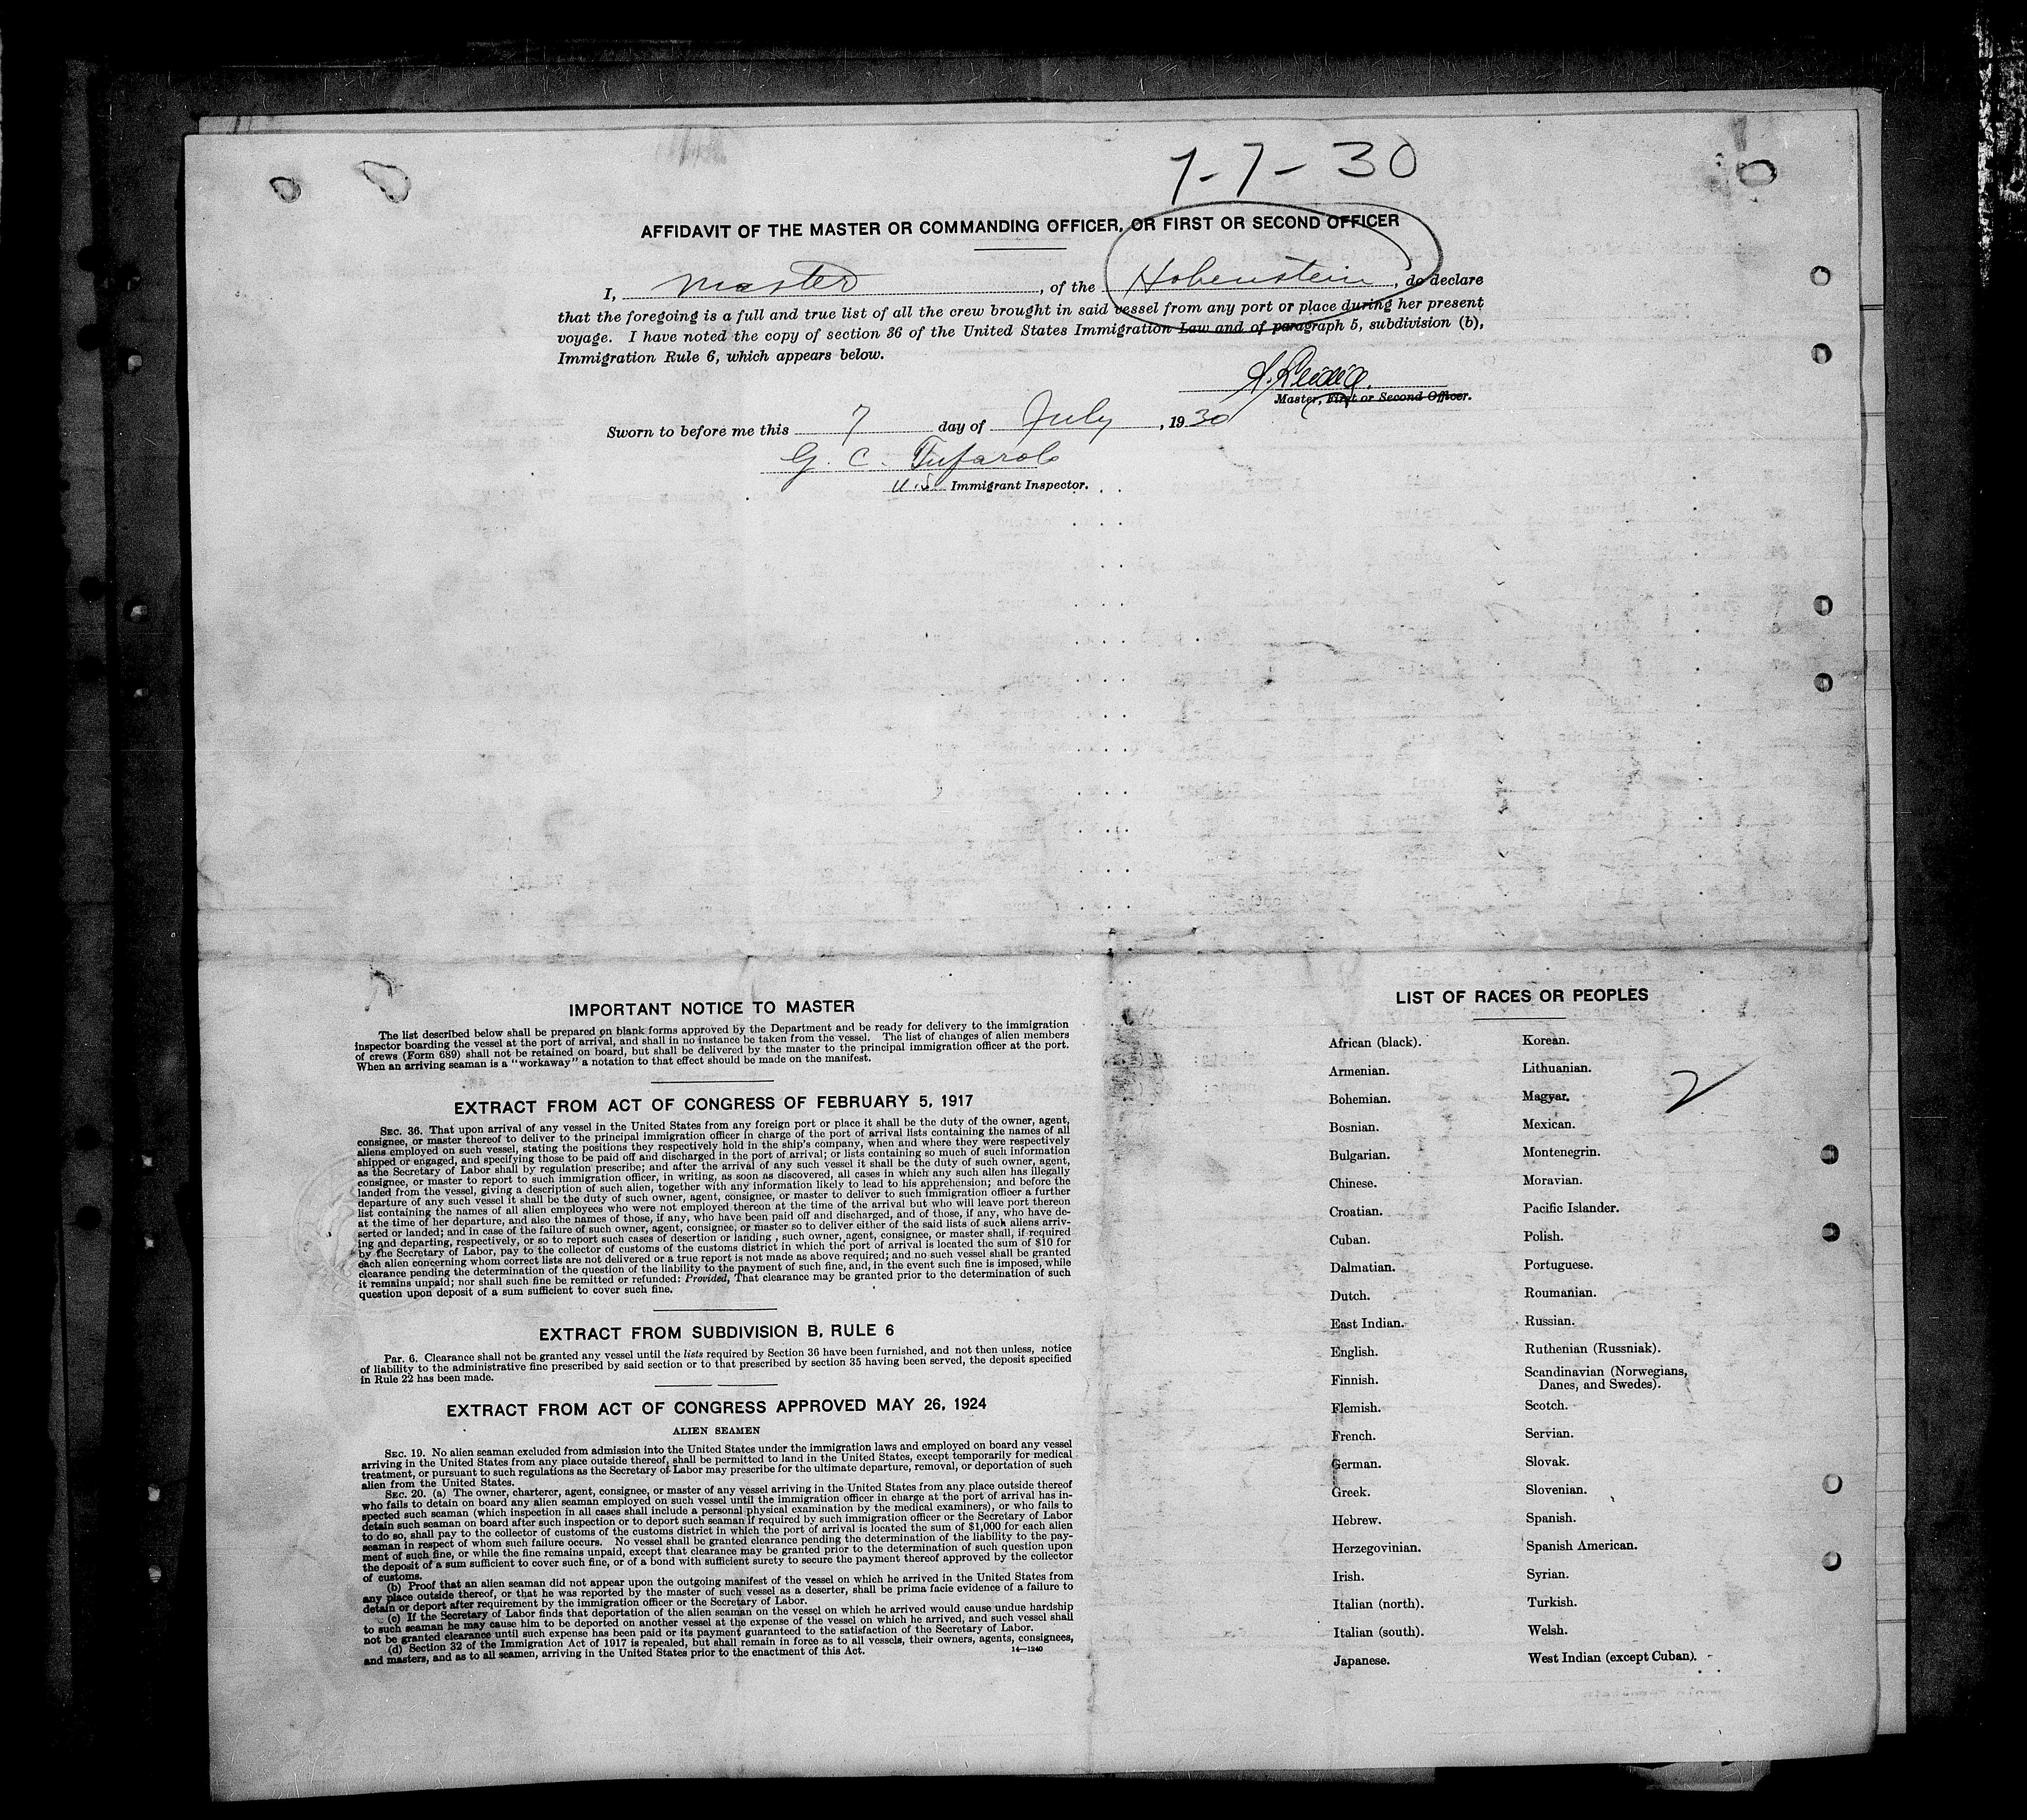 7-7-30
AFFIDAVIT OF THE MASTER OR COMMANDING OFFICER, OR FIRST OR SECOND OFFICER
I, Master, of the Hohenstein, do declare
that the foregoing is a full and true list of all the crew brought in said vessel from any port or place during her present
voyage. I have noted the copy of section 36 of the United States Immigration Law and of paragraph 5, subdivision (b),
Immigration Rule 6, which appears below.
Master, First or Second Officer.
Sworn to before me this 7 day of July, 1930
G. C.
U.S. Immigrant Inspector.
IMPORTANT NOTICE TO MASTER
The list described below shall be prepared on blank forms approved by the Department and be ready for delivery to the immigration
inspector boarding the vessel at the port of arrival, and shall in no instance be taken from the vessel. The list of changes of alien members
of crews (Form 689) shall not be retained on board, but shall be delivered by the master to the principal immigration officer at the port.
When an arriving seaman is a "workaway" a notation to that effect should be made on the manifest.
EXTRACT FROM ACT OF CONGRESS OF FEBRUARY 5, 1917
SEC. 36. That upon arrival of any vessel in the United States from any foreign port or place it shall be the duty of the owner, agent,
consignee, or master thereof to deliver to the principal immigration officer in charge of the port of arrival lists containing the names of all
aliens employed on such vessel, stating the positions they respectively hold in the ship's company, when and where they were respectively
shipped or engaged, and specifying those to be paid off and discharged in the port of arrival; or lists containing so much of such information
as the Secretary of Labor shall by regulation prescribe; and after the arrival of any such vessel it shall be the duty of such owner, agent,
consignee, or master to report to such immigration officer, in writing, as soon as discovered, all cases in which any such alien has illegally
landed from the vessel, giving a description of such alien, together with any information likely to lead to his apprehension; and before the
departure of any such vessel it shall be the duty of such owner, agent, consignee, or master to deliver to such immigration officer a further
list containing the names of all alien employees who were not employed thereon at the time of the arrival but who will leave port thereon
at the time of her departure, and also the names of those, if any, who have been paid off and discharged, and of those, if any, who have de-
serted or landed; and in case of the failure of such owner, agent, consignee, or master so to deliver either of the said lists of such aliens arriv-
ing and departing, respectively, or so to report such cases of desertion or landing , such owner, agent, consignee, or master shall, if required
by the Secretary of Labor, pay to the collector of customs of the customs district in which the port of arrival is located the sum of $10 for
each alien concerning whom correct lists are not delivered or a true report is not made as above required; and no such vessel shall be granted
clearance pending the determination of the question of the liability to the payment of such fine, and, in the event such fine is imposed, while
it remains unpaid; nor shall such fine be remitted or refunded: Provided, That clearance may be granted prior to the determination of such
question upon deposit of a sum sufficient to cover such fine.
EXTRACT FROM SUBDIVISION B, RULE 6
Par. 6. Clearance shall not be granted any vessel until the lists required by Section 36 have been furnished, and not then unless, notice
of liability to the administrative fine prescribed by said section or to that prescribed by section 35 having been served, the deposit specified
in Rule 22 has been made.
EXTRACT FROM ACT OF CONGRESS APPROVED MAY 26, 1924
ALIEN SEAMEN
SEC. 19. No alien seaman excluded from admission into the United States under the immigration laws and employed on board any vessel
arriving in the United States from any place outside thereof, shall be permitted to land in the United States, except temporarily for medical
treatment, or pursuant to such regulations as the Secretary of Labor may prescribe for the ultimate departure, removal, or deportation of such
alien from the United States.
SEC. 20. (a) The owner, charterer, agent, consignee, or master of any vessel arriving in the United States from any place outside thereof
who fails to detain on board any alien seaman employed on such vessel until the immigration officer in charge at the port of arrival has in-
spected such seaman (which inspection in all cases shall include a personal physical examination by the medical examiners), or who fails to
detain such seaman on board after such inspection or to deport such seaman if required by such immigration officer or the Secretary of Labor
to do so, shall pay to the collector of customs of the customs district in which the port of arrival is located the sum of $1,000 for each alien
seaman in respect of whom such failure occurs. No vessel shall be granted clearance pending the determination of the liability to the pay-
ment of such fine, or while the fine remains unpaid, except that clearance may be granted prior to the determination of such question upon
the deposit of a sum sufficient to cover such fine, or of a bond with sufficient surety to secure the payment thereof approved by the collector
of customs.
(b) Proof that an alien seaman did not appear upon the outgoing manifest of the vessel on which he arrived in the United States from
any place outside thereof, or that he was reported by the master of such vessel as a deserter, shall be prima facie evidence of a failure to
detain or deport after requirement by the immigration officer or the Secretary of Labor.
(c) If the Secretary of Labor finds that deportation of the alien seaman on the vessel on which he arrived would cause undue hardship
to such seaman he may cause him to be deported on another vessel at the expense of the vessel on which he arrived, and such vessel shall
not be granted clearance until such expense has been paid or its payment guaranteed to the satisfaction of the Secretary of Labor.
(d) Section 32 of the Immigration Act of 1917 is repealed, but shall remain in force as to all vessels, their owners, agents, consignees,
and masters, and as to all seamen, arriving in the United States prior to the enactment of this Act.
14—1240
LIST OF RACES OR PEOPLES
African (black).
Armenian.
Bohemian.
Bosnian.
Bulgarian.
Chinese.
Croatian.
Cuban.
Dalmatian.
Dutch.
East Indian.
English.
Finnish.
Flemish.
French.
German.
Greek.
Hebrew.
Herzegovinian.
Irish.
Italian (north).
Italian (south).
Japanese.
Korean.
Lithuanian.
Magyar.
Mexican.
Montenegrin.
Moravian.
Pacific Islander.
Polish.
Portuguese.
Roumanian.
Russian.
Ruthenian (Russniak).
Scandinavian (Norwegians,
Danes, and Swedes).
Scotch.
Servian.
Slovak.
Slovenian.
Spanish.
Spanish American.
Syrian.
Turkish.
Welsh.
West Indian (except Cuban).
2